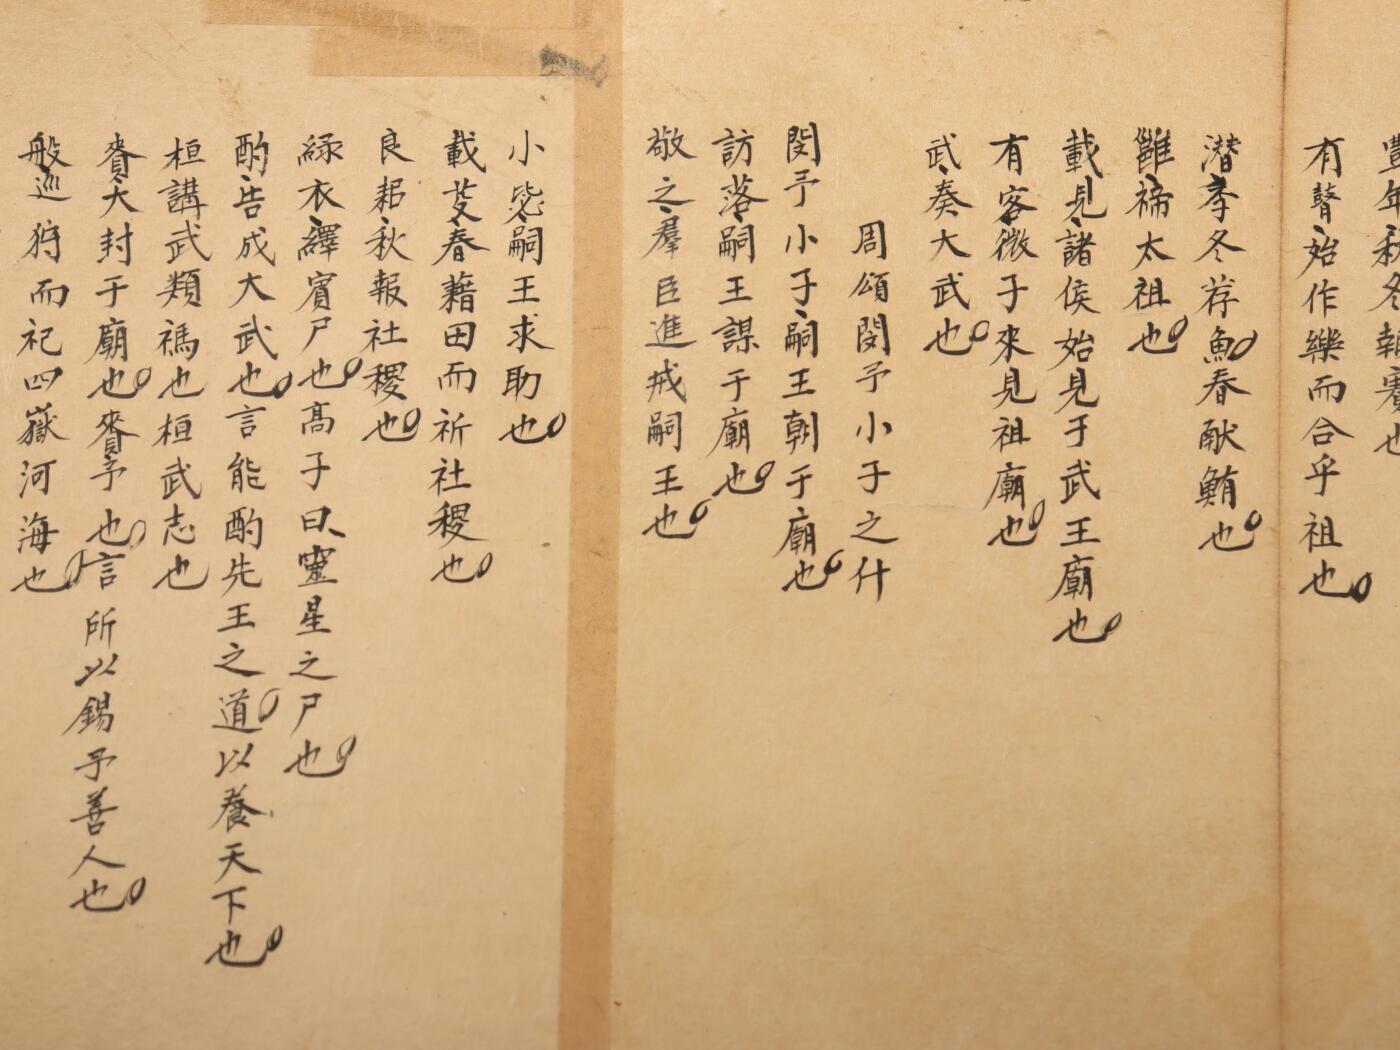 豐年秋冬報賽也
有瞽始作樂而合乎祖也
潜季冬荐魚春献鮪也
雝禘太祖也
載見諸侯始見于武王廟也
有客微子來見祖廟也
武奏大武也
周頌閔予小子之什
閔予小子嗣王朝于廟也
訪落嗣王謀于廟也
敬之羣臣進戒嗣王也
小毖嗣王求助也
載芟春藉田而祈社稷也
良耜秋報社稷也
綠衣繹賓尸也高子曰靈星之尸也
酌告成大武也言能酌先王之道以養天下也
桓講武類禡也桓武志也
賚大封于廟也賚予也言所以錫予善人也
般巡狩而祀四嶽河海也